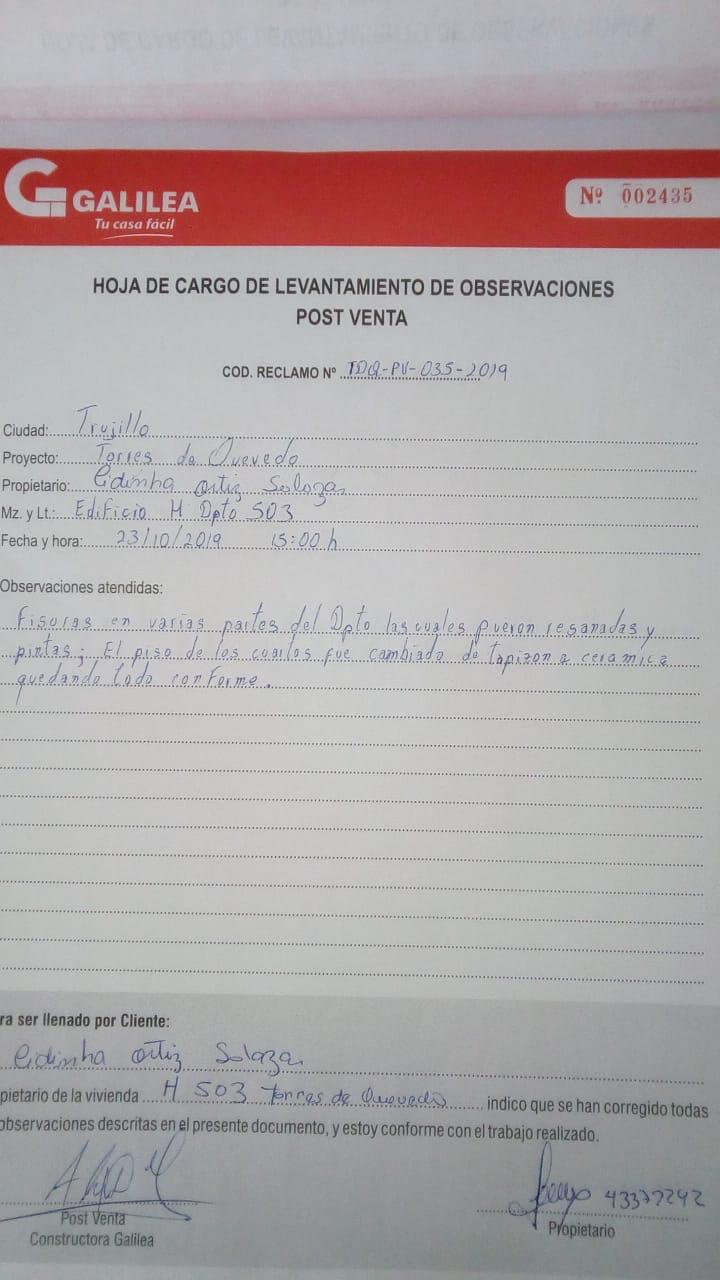 GALILEA
Tu casa fácil
Nº 002435
HOJA DE CARGO DE LEVANTAMIENTO DE OBSERVACIONES
POST VENTA
COD. RECLAMO Nº TDQ-PV-035-2019
Ciudad: Trujillo
Proyecto: Torres de Quevedo
Propietario: Eidinha Ortiz Salazar
Mz. y Lt.: Edificio H Dpto 503
Fecha y hora: 23/10/2019 15:00 h
Observaciones atendidas:
Fisuras en varias partes del Dpto las cuales fueron resanadas y
pintas; El piso de los cuartos fue cambiado de tapizon a ceramica
quedando todo conforme.
ra ser llenado por Cliente:
Eidinha Ortiz Salazar
pietario de la vivienda H 503 Torres de Quevedo indico que se han corregido todas
observaciones descritas en el presente documento, y estoy conforme con el trabajo realizado.
43377242
Post Venta
Constructora Galilea
Propietario